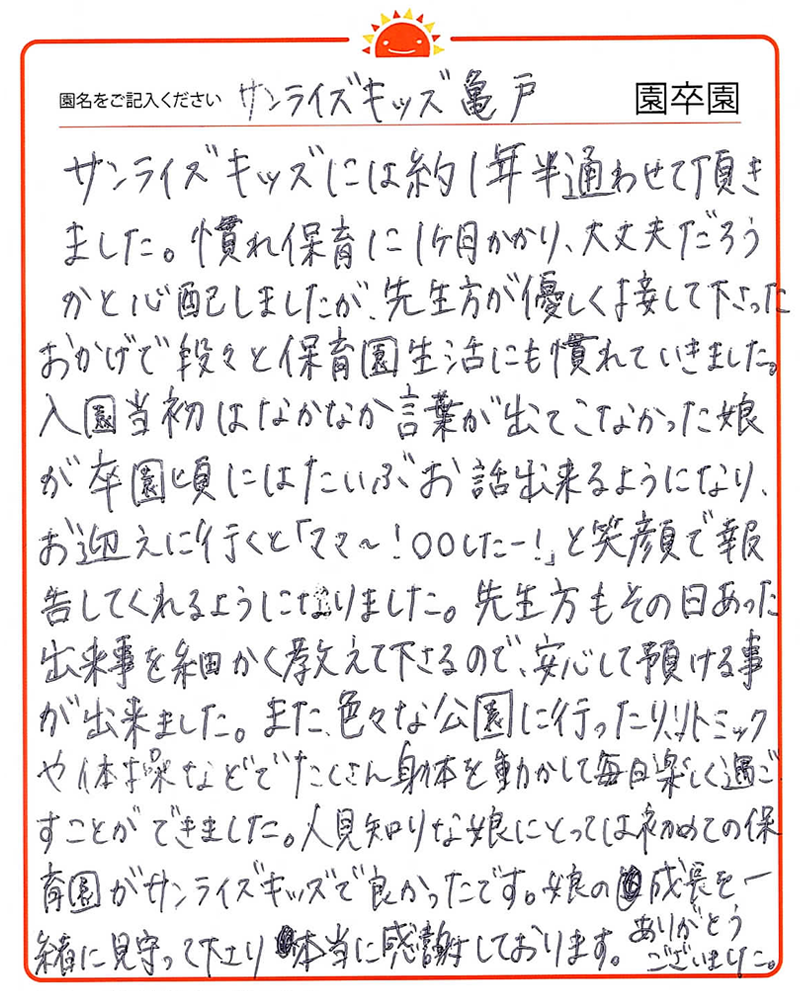 園名をご記入ください サンライズキッズ亀戸 園卒園
サンライズキッズには約1年半通わせて頂き
ました。慣れ保育に1ヶ月かかり、大丈夫だろう
かと心配しましたが、先生方が優しく接して下さった
おかげで段々と保育園生活にも慣れていきました。
入園当初はなかなか言葉が出てこなかった娘
が卒園頃にはだいぶお話出来るようになり、
お迎えに行くと「ママ〜!○○したー!」と笑顔で報
告してくれるようになりました。先生方もその日あった
出来事を細かく教えて下さるので、安心して預ける事
が出来ました。また、色々な公園に行ったり、リトミック
や体操などでたくさん身体を動かして毎日楽しく過ご
すことができました。人見知りな娘にとっては初めての保
育園がサンライズキッズで良かったです。娘の成長を一
緒に見守って下さり本当に感謝しております。ありがとう
ございました。